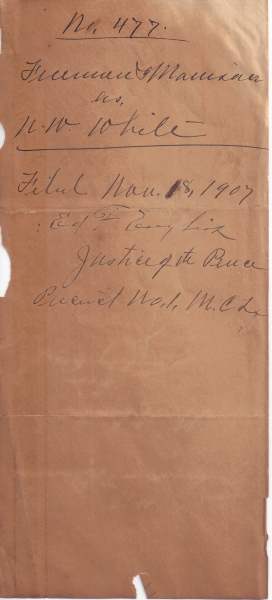 No. 477.
Freeman & Morrison
vs.
N. W. White
Filed Nov. 18, 1907
Ed F. English
Justice of the Peace
Precinct No. 1, M.C.